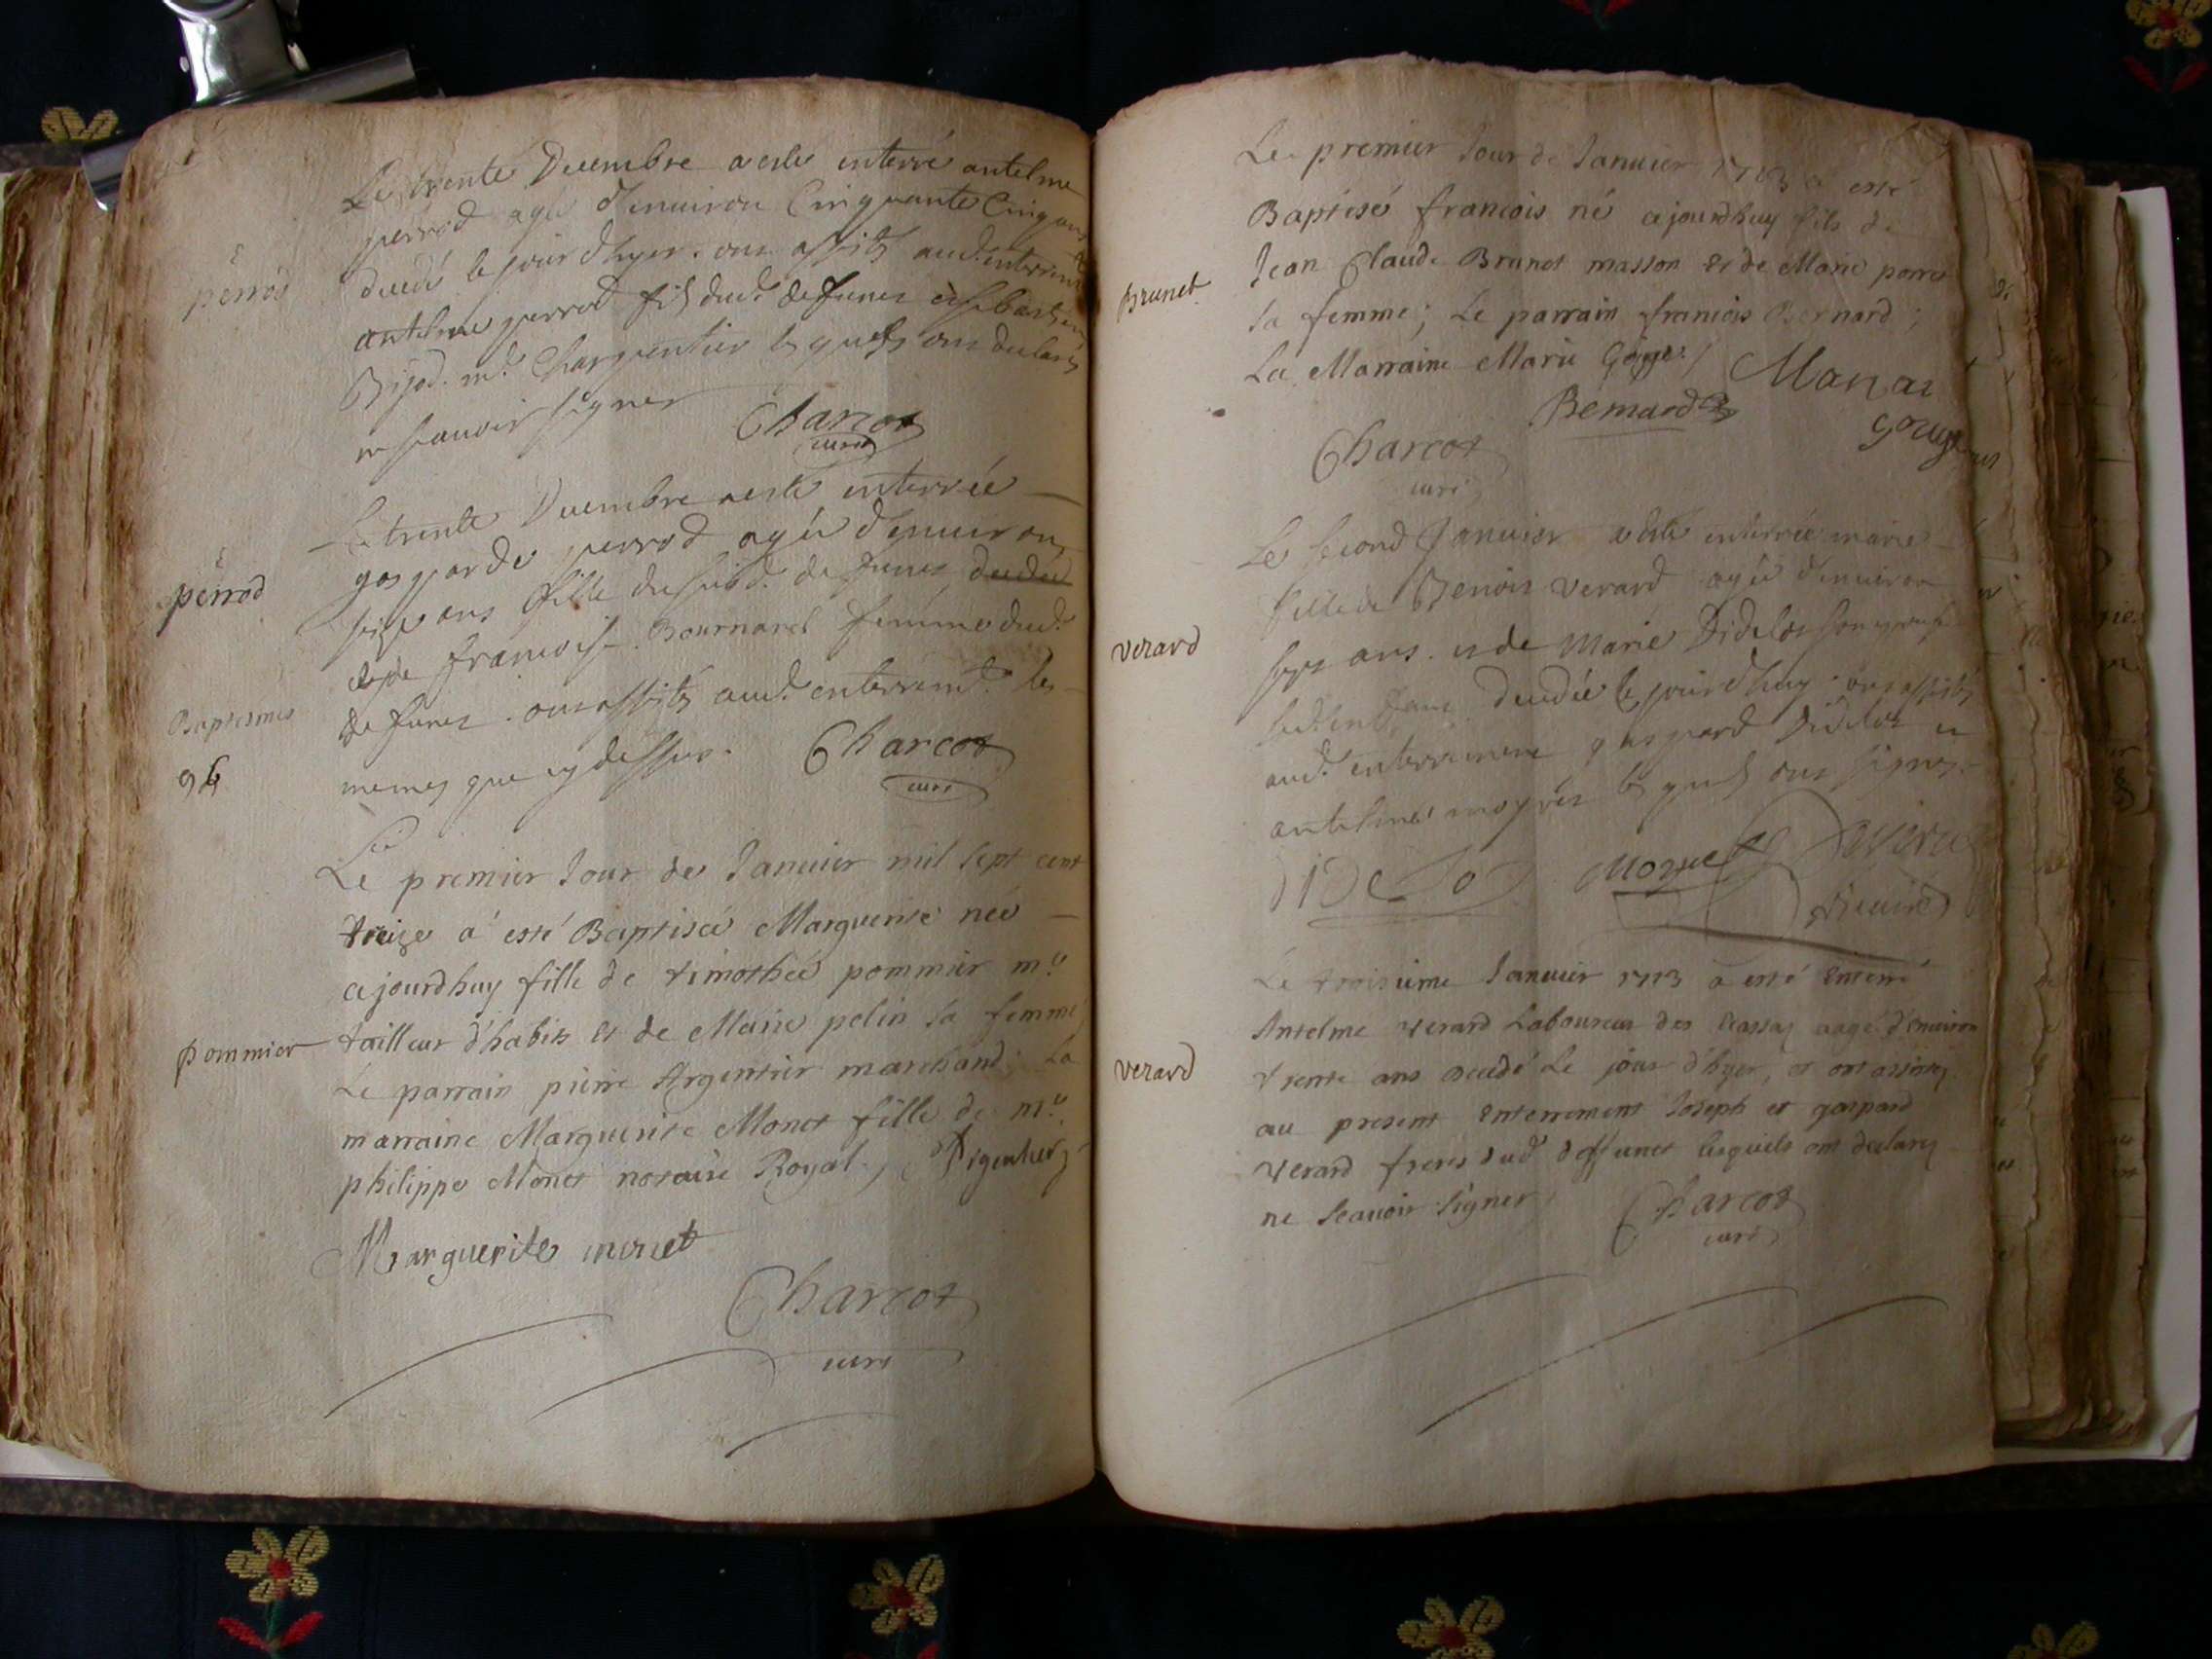 Le trente Decembre a este enterré antelme
perrod agé d'enuiron Cinquante Cinq ans
decedé le jour d'hyer. ont assisté aud. enterrem.
antelme perrod fil dud. defunct et sebastien
m.e Charpentier lesquels ont declarés
ne scauoir signer
Charcot
curé
perrod
Le trente Decembre a esté enterrée
gasparde perrod agée d'enuiron
seize ans fille du susd. defunct decedée
et de francoise Bournard femme dud.
defunct. ont assistés aud. enterremt. les
memes que cy dessus. Charcot
curé
perrod
Baptesmes
Le premier Jour de Januier mil sept cent
treize a esté Baptisée Marguerite née
cejourdhuy fille de timothée pommier m.e
tailleur d'habits et de Marie pelin sa femme
Le parrain pierre Argentier marchand; La
marraine Marguerite Monet fille de m.e
philippe Monet notaire Royal. Argentier
pommier
Marguerite monet
Charcot
curé
Le premier Jour de Januier 1713 a esté
Baptisé francois né cejourdhuy fils de
Jean Claude Brunet masson et de Marie
sa femme; Le parrain francois Bernard;
La Marraine Marie
Brunet
Bernard
Charcot
curé
Le second Januier a esté enterrée marie
fille de Benoit verard agée d'enuiron
sept ans et de Marie Didelot son epouse
decedée le jourd'huy ont assistés
aud. enterrement gaspard Didelot et
antelme moynet lesquels ont signes
verard
Didelot moynet
vicaire
Le troisieme Januier 1713 a esté Enterré
Antelme verard Laboureur des aagé d'enuiron
trente ans decedé Le jour d'hyer, et ont assistez
au present Enterrement Joseph et gaspard
verard freres dud. deffunct lesquels ont declarez
ne scauoir signer
verard
Charcot
curé